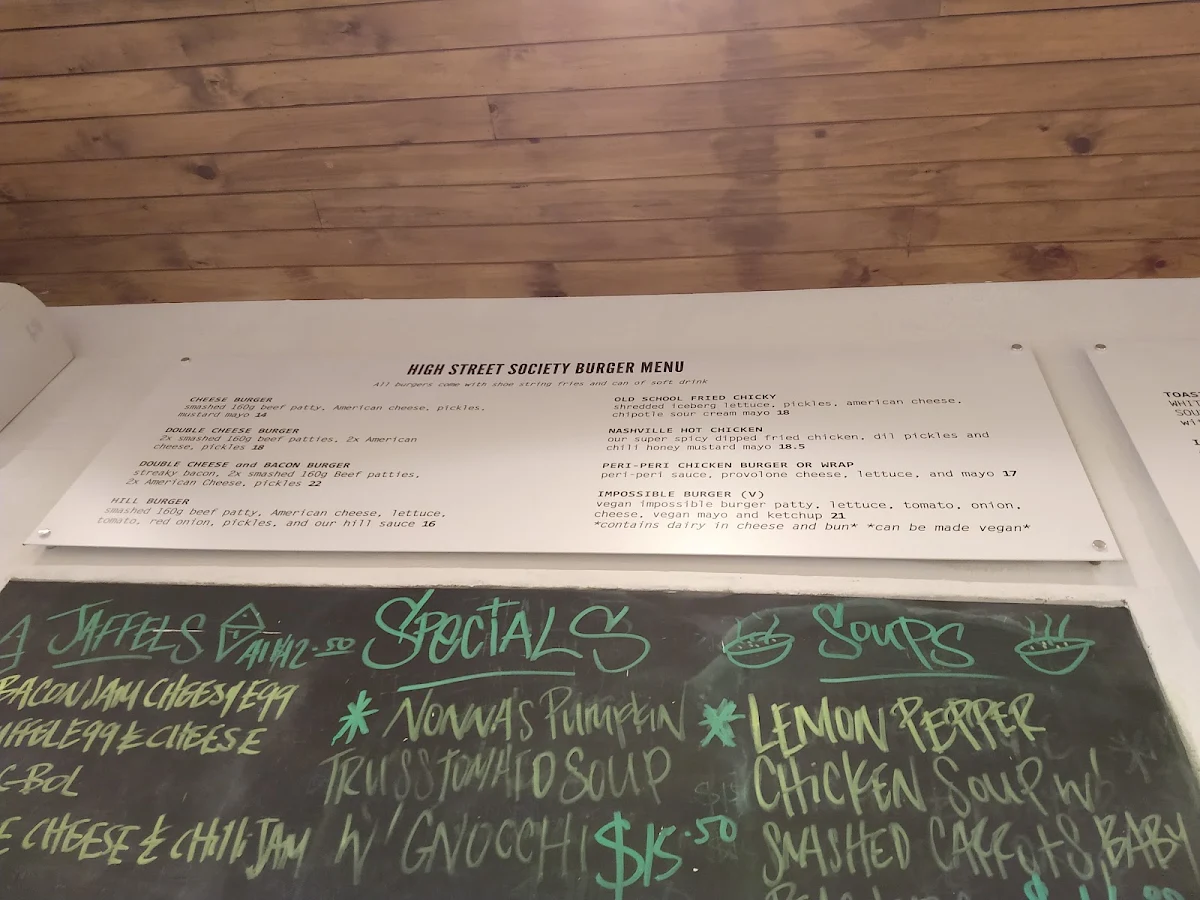 HIGH STREET SOCIETY BURGER MENU
All burgers come with shoe string fries and can of soft drink
CHEESE BURGER
smashed 160g beef patty, American cheese, pickles,
mustard mayo 14
DOUBLE CHEESE BURGER
2x smashed 160g beef patties, 2x American
cheese, pickles 18
DOUBLE CHEESE and BACON BURGER
streaky bacon, 2x smashed 160g Beef patties,
2x American Cheese, pickles 22
HILL BURGER
smashed 160g beef patty, American cheese, lettuce,
tomato, red onion, pickles, and our hill sauce 16
OLD SCHOOL FRIED CHICKY
shredded iceberg lettuce, pickles, american cheese,
chipotle sour cream mayo 18
NASHVILLE HOT CHICKEN
our super spicy dipped fried chicken, dil pickles and
chili honey mustard mayo 18.5
PERI-PERI CHICKEN BURGER OR WRAP
peri-peri sauce, provolone cheese, lettuce, and mayo 17
IMPOSSIBLE BURGER (V)
vegan impossible burger patty, lettuce, tomato, onion,
cheese, vegan mayo and ketchup 21
*contains dairy in cheese and bun* *can be made vegan*
JAFFELS All $12.50
BACON JAM CHEESY Egg
Egg & CHEESE
CHEESE & CHilli JAM
SPECIALS
* NONNAS PumpKiN
TRUSS TOMATO SOUP
W/ GNOCCHI $15.50
SoupS
* LEMON PEPPER
CHiCKEN SouP W/
SMASHED CARROTS, BABY